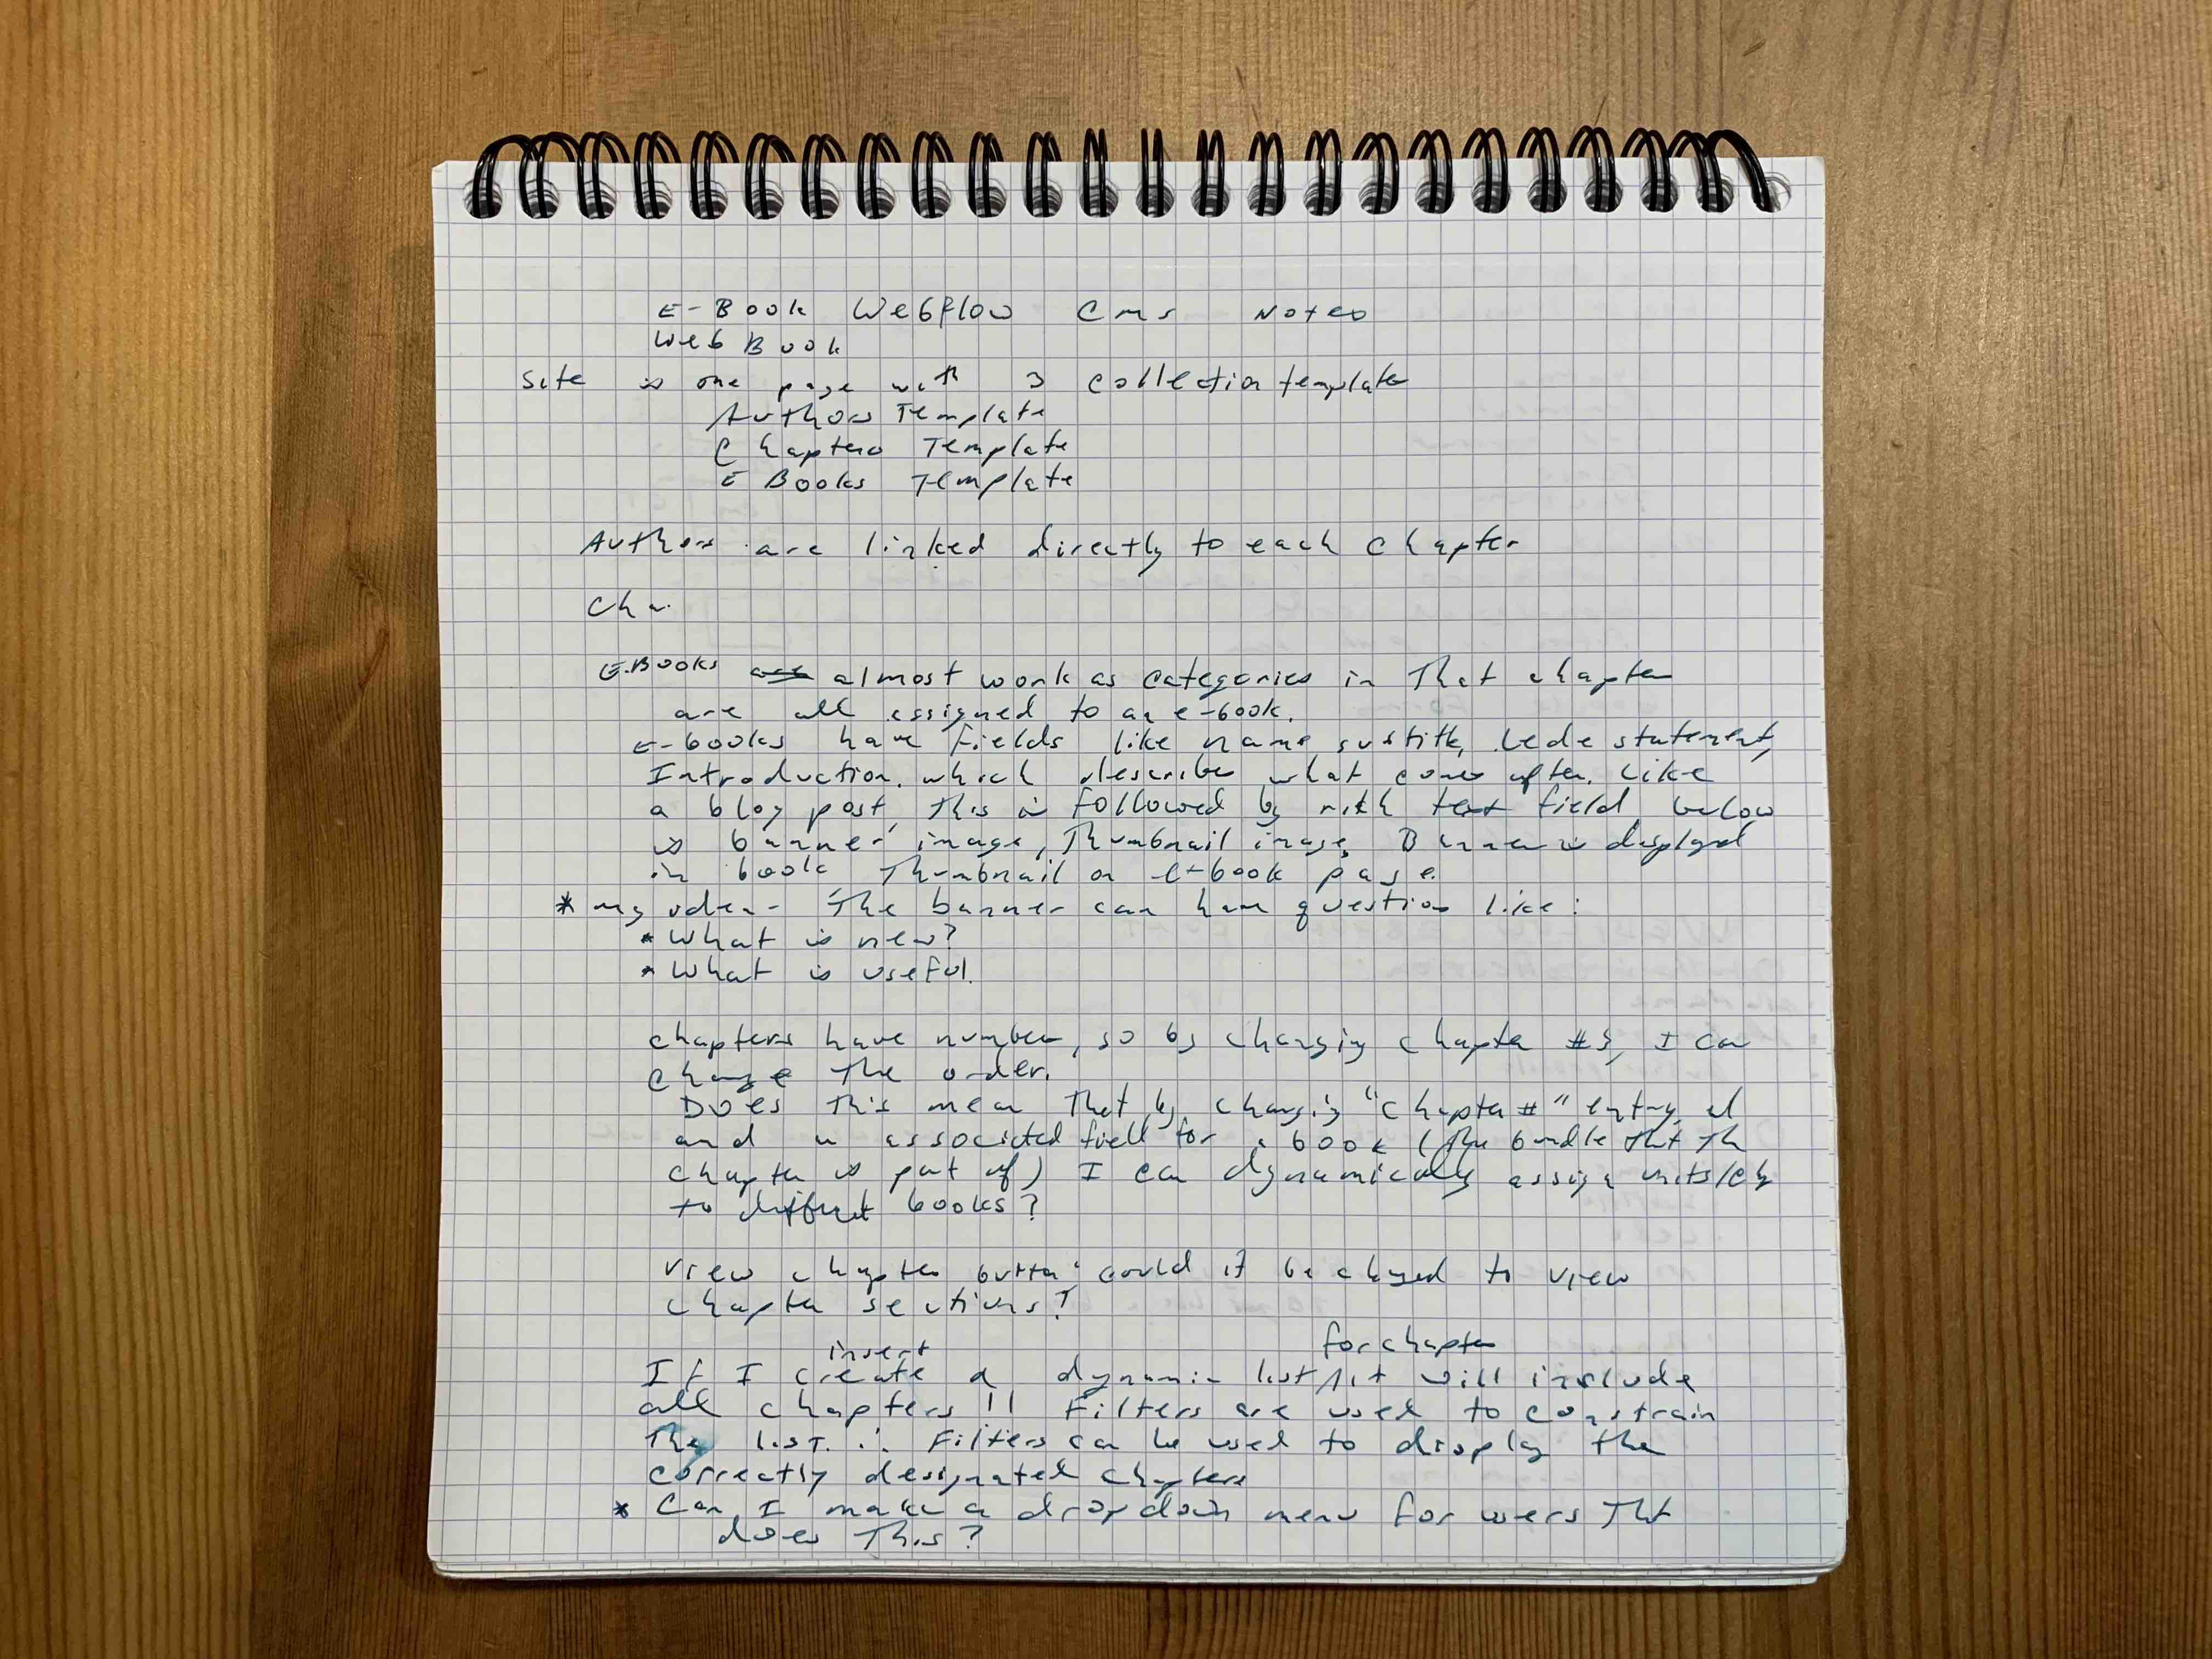 E-Book Webflow CMS Notes
Web Book
Site is one page with 3 collection template
Authors Template
Chapters Template
E Books Template
Authors are linked directly to each chapter
Cha.
E-Books are almost work as categories in that chapter
are all assigned to an e-book.
E-books have fields like name, subtitle, Lede statement,
Introduction, which describes what comes after. Like
a blog post, this is followed by rich text field below
is banner image, Thumbnail image. Banner is displayed
in book Thumbnail on e-book page.
* my idea - The banner can have question like:
* What is new?
* What is useful.
chapters have number, so by changing chapter #s, I can
change the order.
Does this mean that by changing "chapter #" entry
and associated field for a book (the bundle that the
chapter is part of) I can dynamically assign units/ch
to different books?
View chapter button could it be changed to view
chapter sections?
insert for chapter
If I create a dynamic list, it will include
all chapters!! Filters are used to constrain
The list. ∴ Filters can be used to display the
correctly designated chapters
* Can I make a dropdown menu for users That
does This?